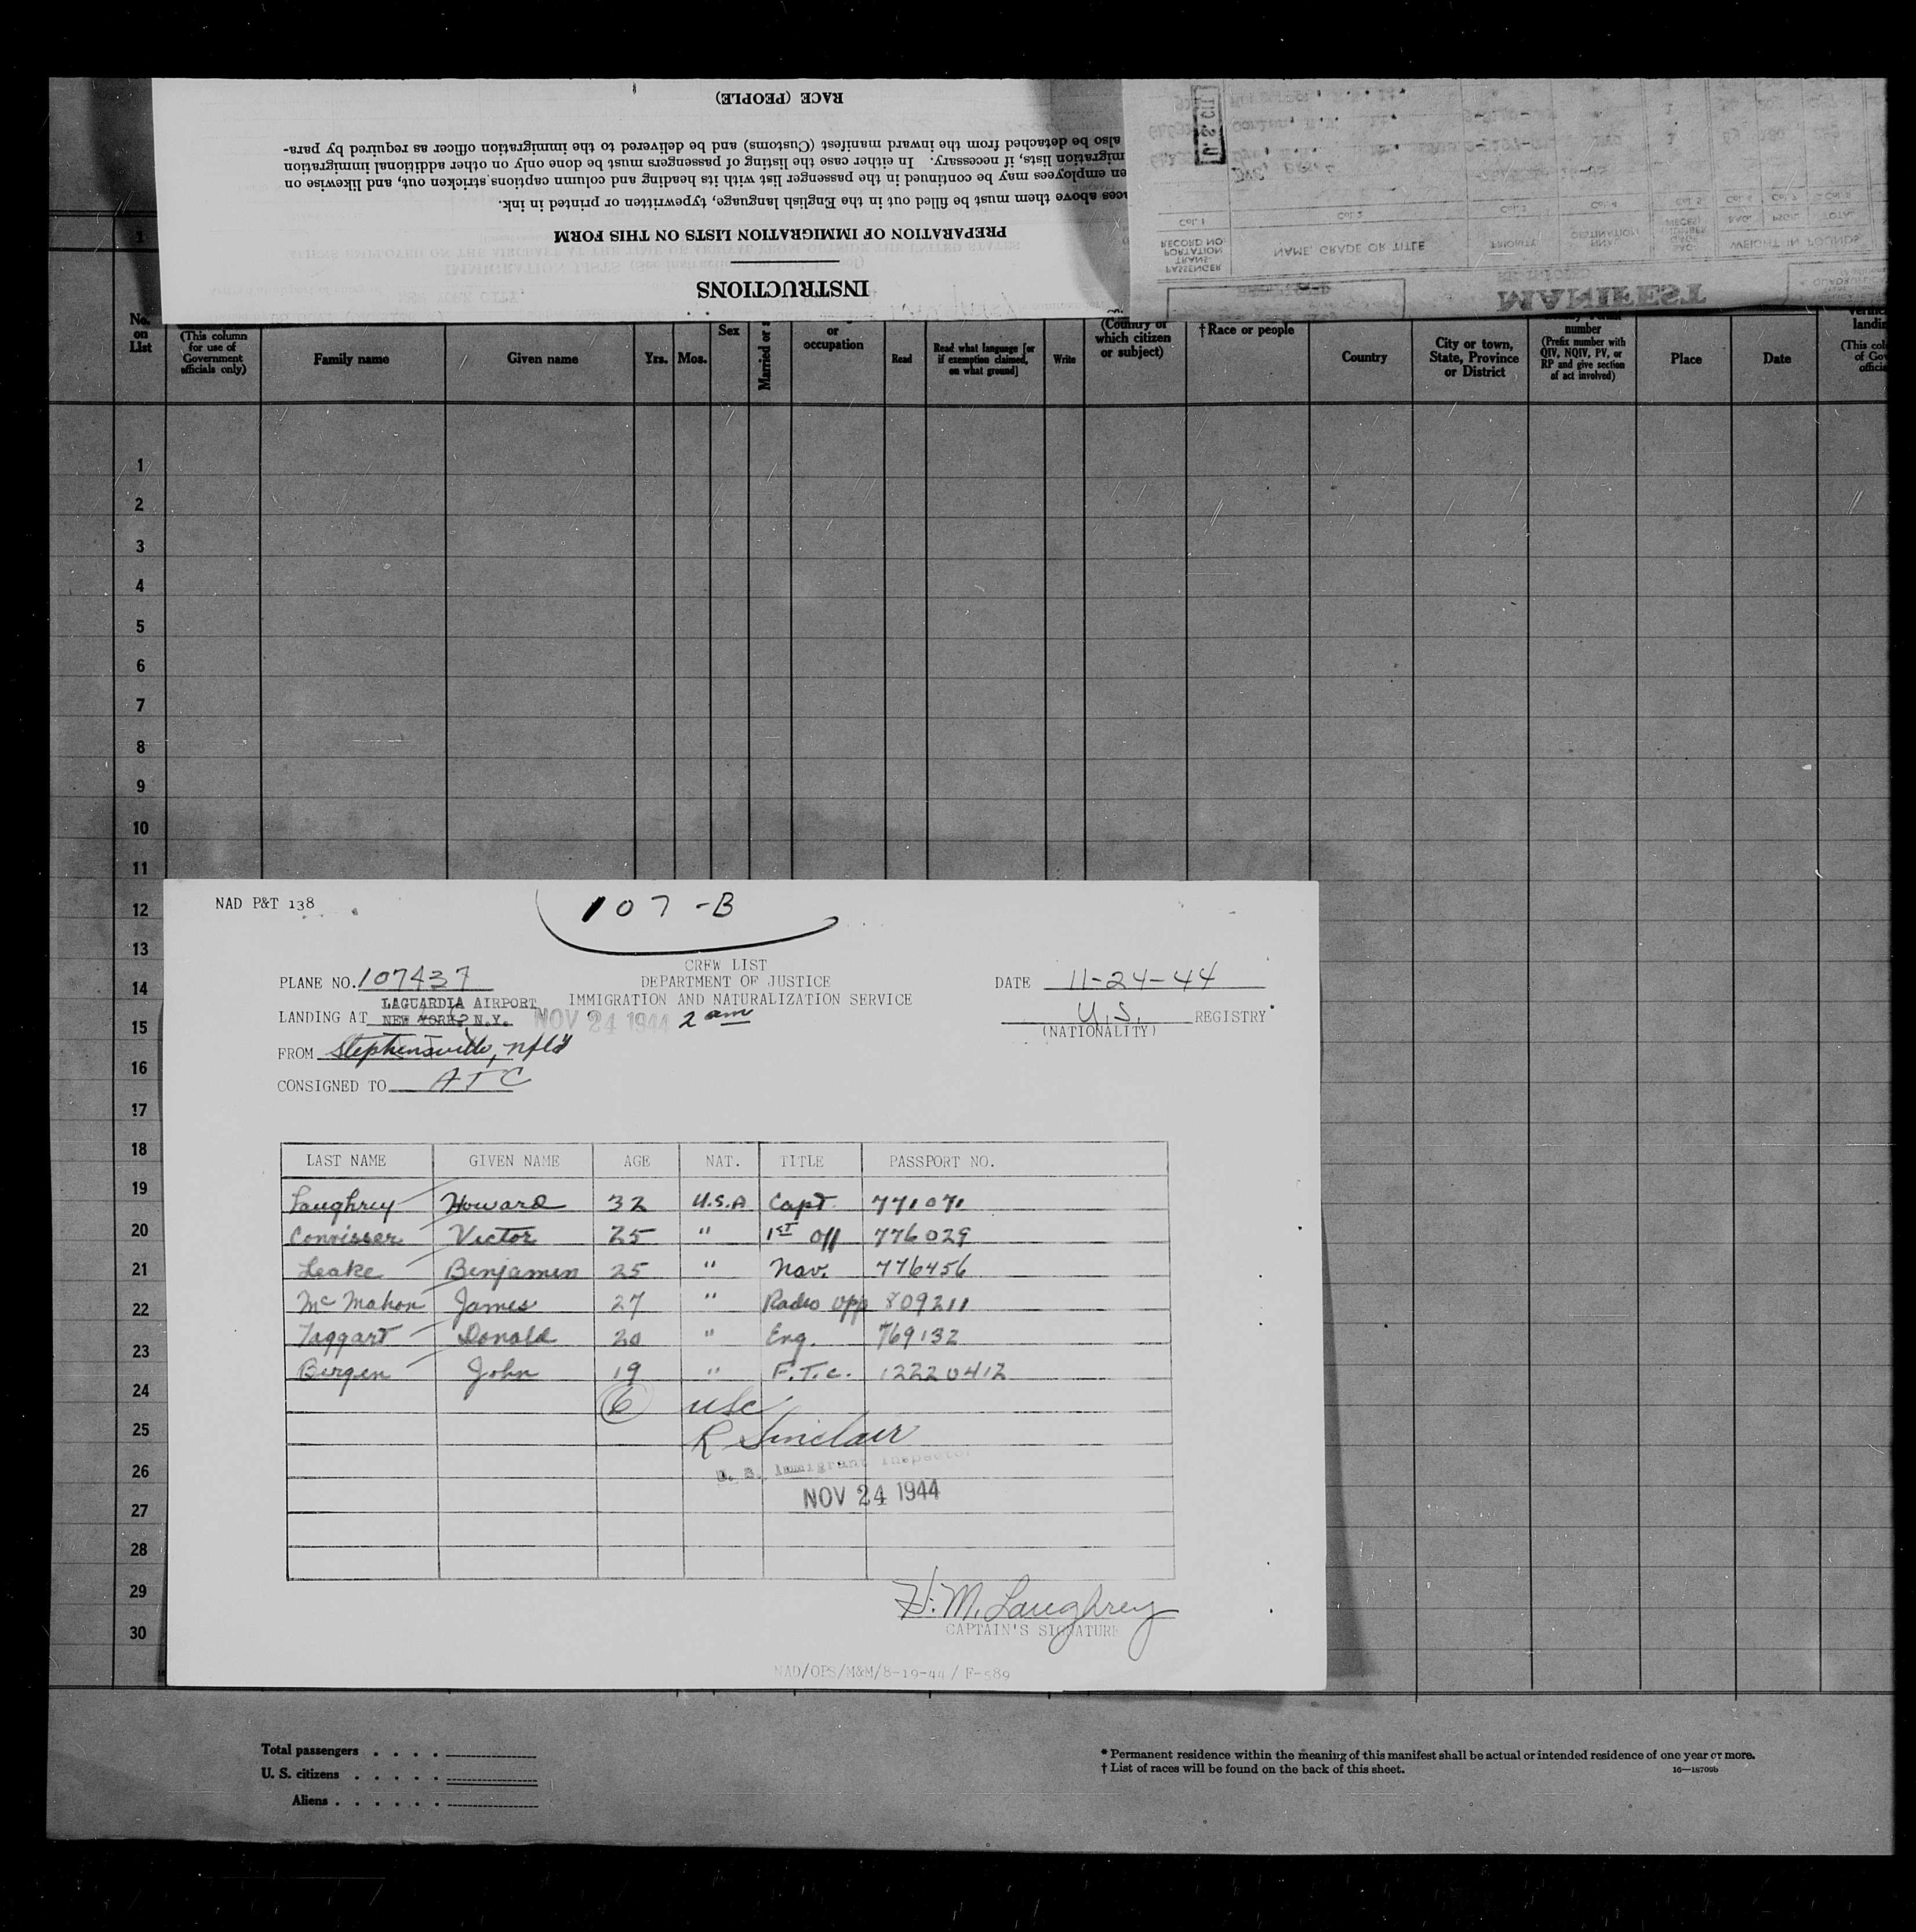 RACE (PEOPLE)
also be detached from the inward manifest (Customs) and be delivered to the immigration officer as required by para-
migration lists, if necessary. In either case the listing of passengers must be done only on other additional immigration
en employees may be continued in the passenger list with its heading and column captions stricken out, and likewise on
aces above them must be filled out in the English language, typewritten or printed in ink.
PREPARATION OF IMMIGRATION LISTS ON THIS FORM
INSTRUCTIONS
MANIFEST
PASSENGER TRANSPORTATION RECORD NO.
NAME, GRADE OR TITLE
PRIORITY
FINAL DESTINATION
WEIGHT IN POUNDS
Col. 1 Col. 2 Col. 3 Col. 4 Col. 5
No. on List
(This column for use of Government officials only)
Family name
Given name
Yrs. Mos.
Sex
Married or s
or occupation
Read
Read what language [or if exemption claimed, on what ground]
Write
(Country of which citizen or subject)
†Race or people
Country
City or town, State, Province or District
number (Prefix number with QIV, NQIV, PV, or RP and give section of act involved)
Place
Date
1
2
3
4
5
6
7
8
9
10
11
12
13
14
15
16
17
18
19
20
21
22
23
24
25
26
27
28
29
30
NAD P&T 138
107-B
CREW LIST
PLANE NO. 107437 DEPARTMENT OF JUSTICE DATE 11-24-44
LAGUARDIA AIRPORT IMMIGRATION AND NATURALIZATION SERVICE
LANDING AT NEW YORK, N.Y. NOV 24 1944 2 am U.S. REGISTRY
(NATIONALITY)
FROM Stephensville, Nfld
CONSIGNED TO ATC
LAST NAME GIVEN NAME AGE NAT. TITLE PASSPORT NO.
Laughrey Howard 32 U.S.A Capt. 771071
Connisser Victor 25 " 1st off 776029
Leake Benjamin 25 " Nav. 776456
McMahon James 27 " Radio opp 809211
Taggart Donald 20 " Eng. 769132
Birgen John 19 " F.T.C. 12220412
6 USC
R Sinclair
U. S. Immigrant Inspector
NOV 24 1944
H. M. Laughrey
CAPTAIN'S SIGNATURE
NAD/OPS/M&M/8-19-44/ F-589
Total passengers . . . .
U. S. citizens . . . . .
Aliens . . . . . .
* Permanent residence within the meaning of this manifest shall be actual or intended residence of one year or more.
† List of races will be found on the back of this sheet.
16—18709b